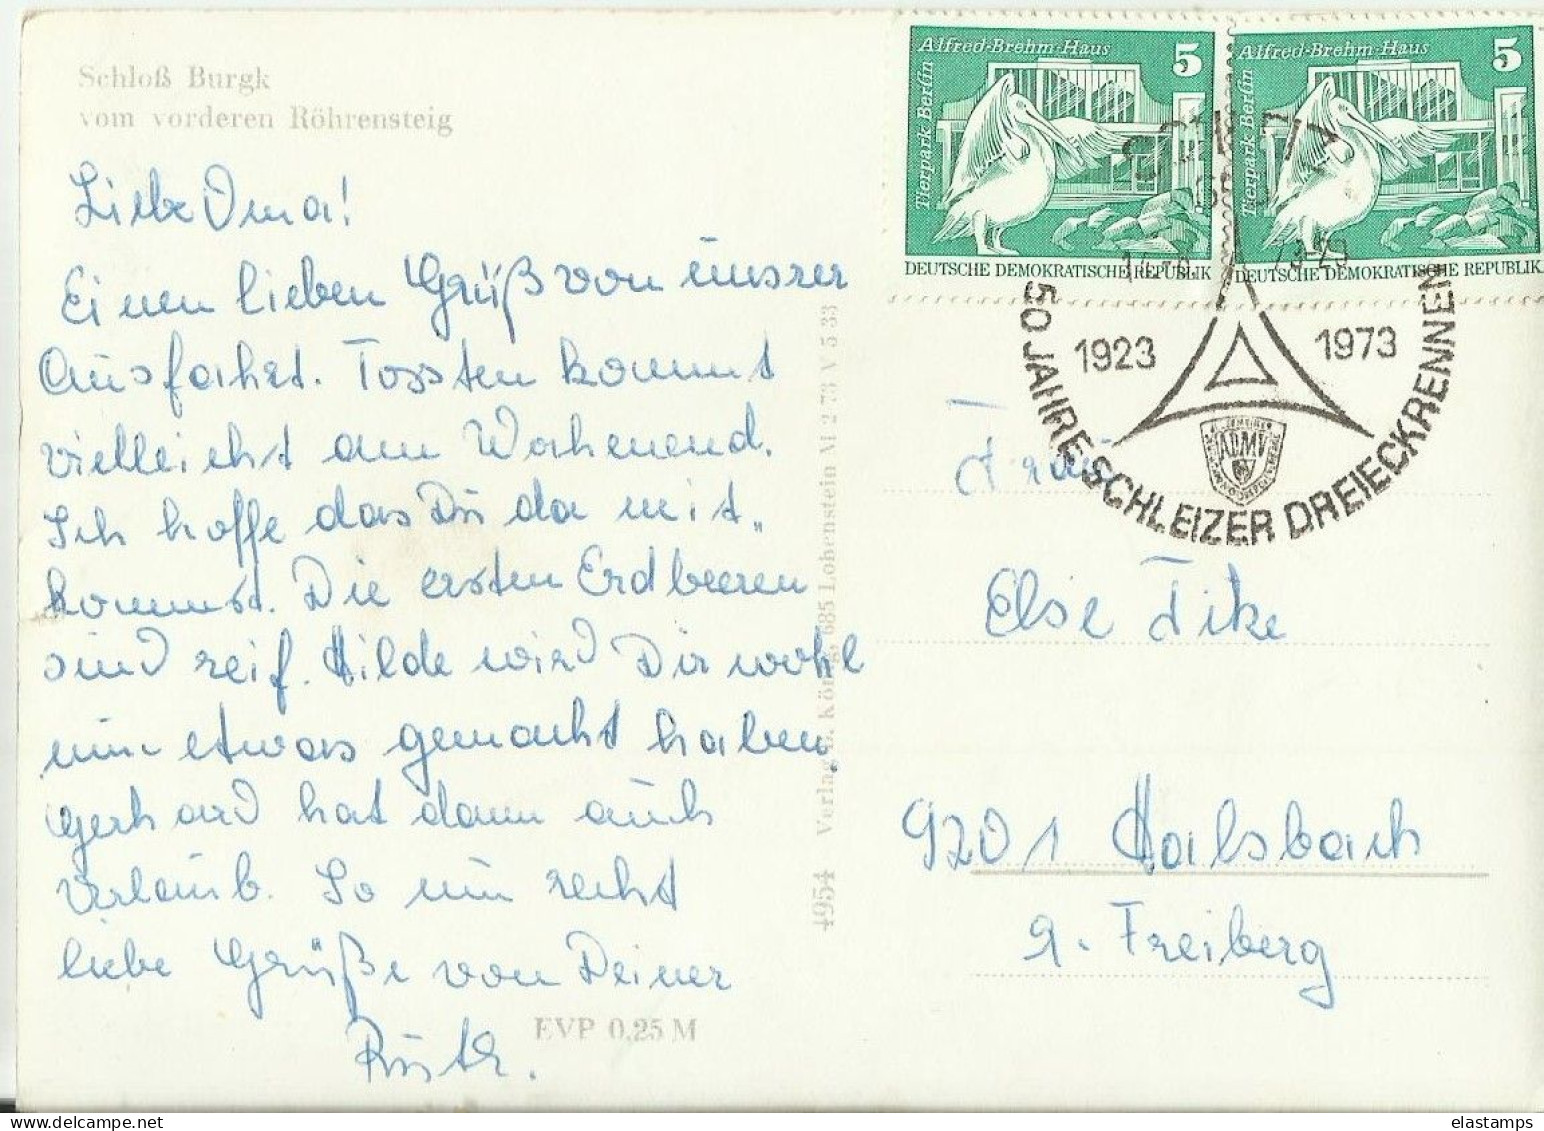 Schloß Burgk
vom vorderen Röhrensteig
Liebe Oma!
Einen lieben Gruß von unsrer
Ausfahrt. Torsten kommt
vielleicht am Wochenend.
Ich hoffe das Du da mit-
kommst. Die ersten Erdbeeren
sind reif. Hilde wird Dir wohl
nun etwas gemacht haben,
Gerhard hat dann auch
Urlaub. So nun recht
liebe Grüße von Deiner
Ruth.
EVP 0,25 M
4954 Verlag D. König, 685 Lobenstein VI 2 73 V 5 33
Alfred-Brehm-Haus 5
Tierpark Berlin
DEUTSCHE DEMOKRATISCHE REPUBLIK
Alfred-Brehm-Haus 5
Tierpark Berlin
DEUTSCHE DEMOKRATISCHE REPUBLIK
SCHLEIZ
1923 1973
50 JAHRE SCHLEIZER DREIECKRENNEN
ADMV
Frau
Else Fike
9201 Halsbach
a. Freiberg
elastamps